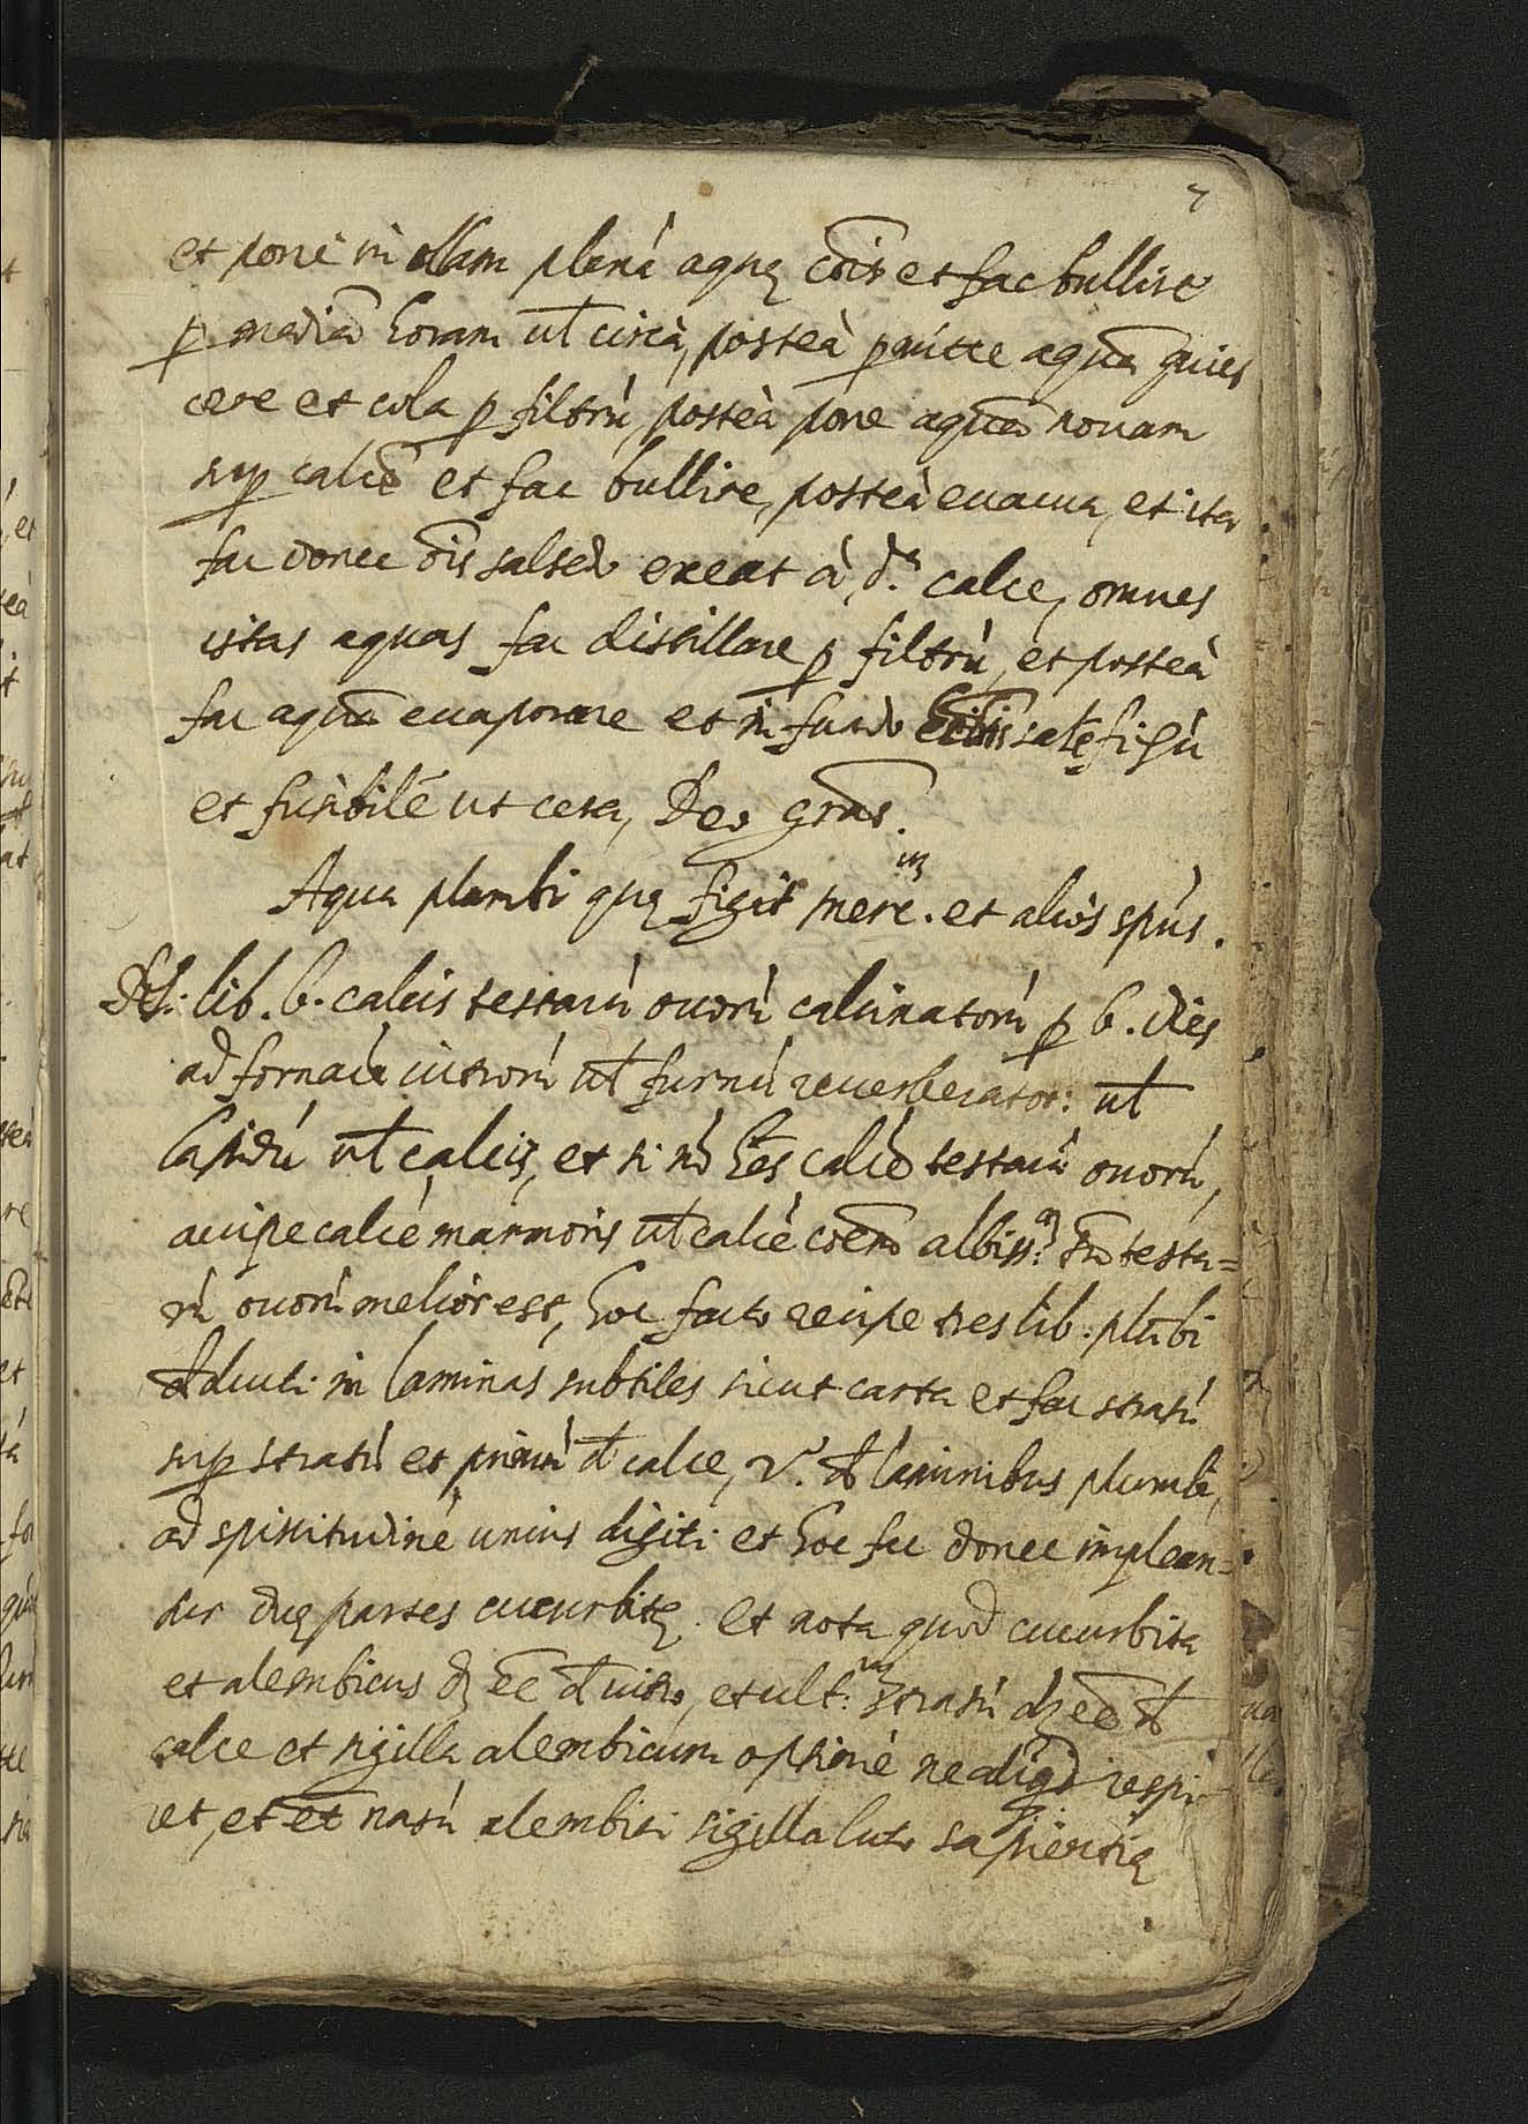 7
et poné in ollam plenã aquę cõis et fac bullire
ꝑ mediã horam uł circà, posteà ꝑmitte aquã quies
cere et cola ꝑ filtrũ, posteà pone aquã nouam
suꝑ calcẽ et fac bullire, posteà euacua, et ita
fac donec õis salsedo exeat à d.ª calce, omnes
istas aquas fac distillare ꝑ filtrũ, et posteà
fac aquã euaporare et in fundo salẽ fixũ
et fusibilẽ ut cera, Deo grãs.
Aqua plumbi quę figit merc.ᵘᵐ et aliòs spũs.
lib. 6. calcis testarũ ouorũ calcinatorũ ꝑ 6. dies
ad fornacẽ uitrorũ uł furnũ reuerberator: uł
lapidũ uł calcis, et si nõ hẽs calcẽ testarũ ouorũ,
accipe calcẽ marmoris uł calcẽ cõem albiss:ᵃᵐ testa=
rũ ouorũ melior est, hoc facto recipe tres lib: plũbi
adducti in laminas subtiles sicut carta et fac stratũ
suꝑ stratũ et primũ đ calce, 2.º đ laminibus plumbi,
ad spissitudinẽ unius digiti et hoc fac donec implean=
tur duę partes cucurbitę. et nota quod cucurbita
et alembicus dʒ eẽ đ uitro, et ult:ᵘᵐ stratũ dʒ eẽ đ
calce et sigilla alembicum optimè ne aliqd respi
ret, et et nasũ alembici sigilla luto sapientię